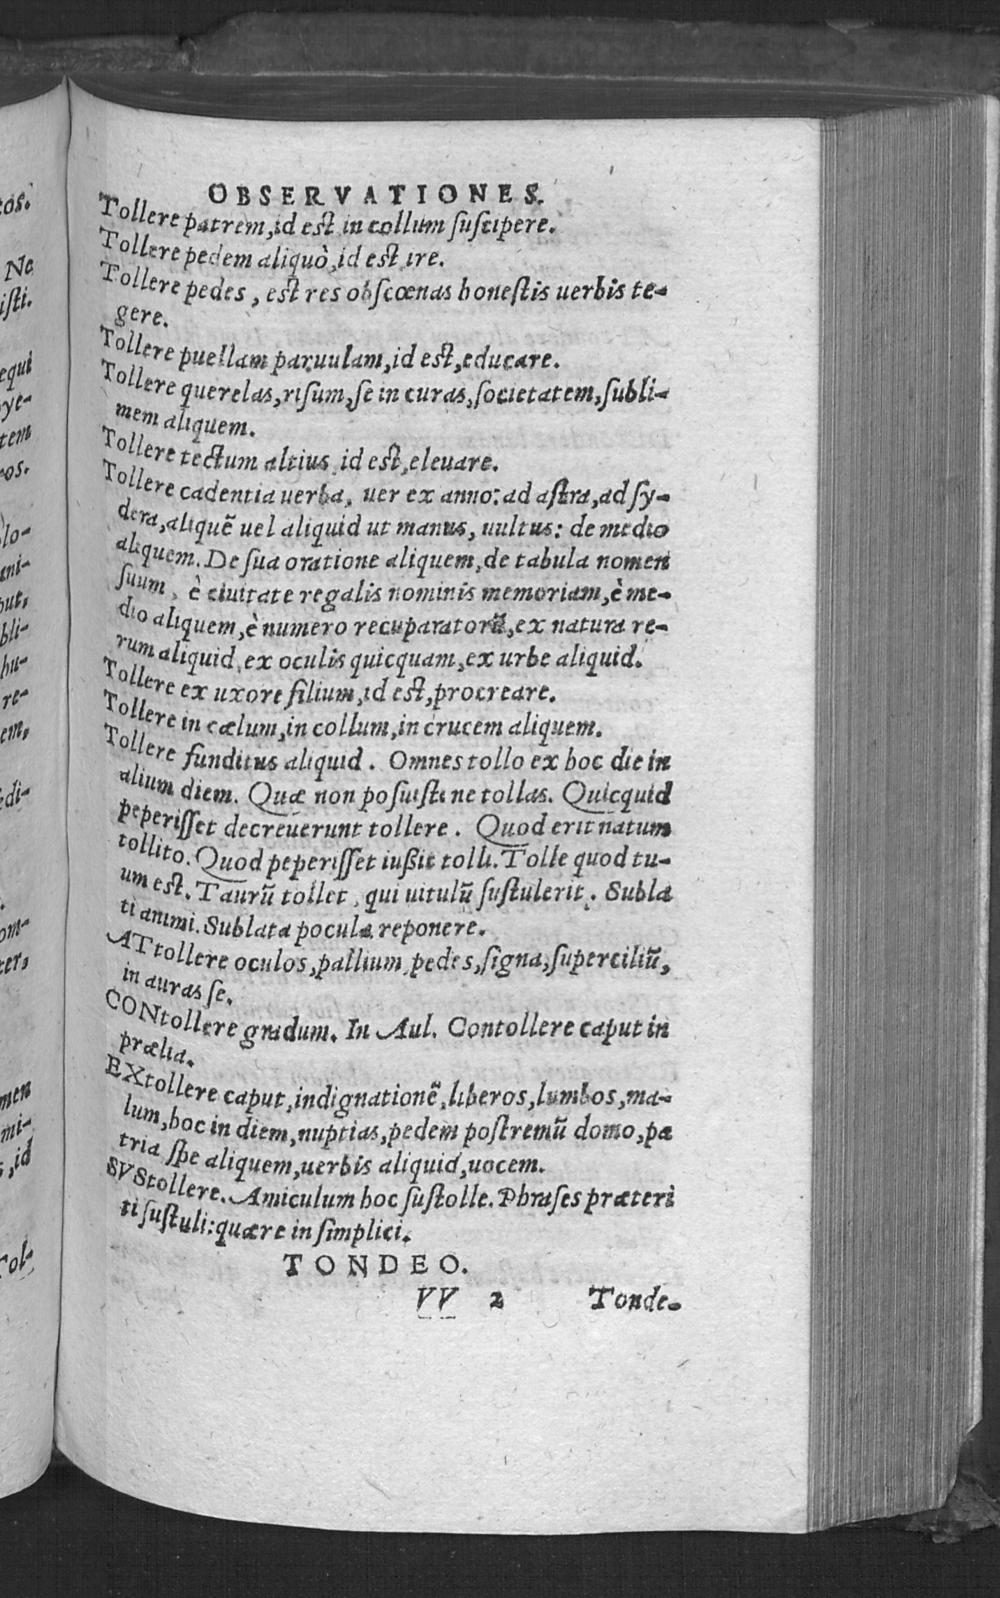 OBSERVATIONES.
Tollere patrem, id est in collum suscipere.
Tollere pedem aliquò, id est ire.
Tollere pedes, est res obscœnas honestis uerbis te-
gere.
Tollere puellam paruulam, id est, educare.
Tollere querelas, risum, se in curas, societatem, subli-
mem aliquem.
Tollere tectum altius, id est, eleuare.
Tollere cadentia uerba, uer ex anno: ad astra, ad sy-
dera, aliquē uel aliquid ut manus, uultus: de medio
aliquem. De sua oratione aliquem, de tabula nomen
suum, è ciuitate regalis nominis memoriam, è me-
dio aliquem, è numero recuperatorū, ex natura re-
rum aliquid, ex oculis quicquam, ex urbe aliquid.
Tollere ex uxore filium, id est, procreare.
Tollere in cælum, in collum, in crucem aliquem.
Tollere funditus aliquid. Omnes tollo ex hoc die in
alium diem. Quæ non posuisti ne tollas. Quicquid
peperisset decreuerunt tollere. Quod erit natum
tollito. Quod peperisset iußit tolli. Tolle quod tu-
um est. Taurū tollet, qui uitulū sustulerit. Subla
ti animi. Sublata pocula reponere.
ATtollere oculos, pallium, pedes, signa, superciliū,
in auras se.
CONtollere gradum. In Aul. Contollere caput in
prælia.
EXtollere caput, indignationē, liberos, lumbos, ma-
lum, hoc in diem, nuptias, pedem postremū domo, pa
tria spe aliquem, uerbis aliquid, uocem.
SVStollere. Amiculum hoc sustolle. Phrases præteri
ti sustuli: quære in simplici.
TONDEO.
VV 2 Tonde-
tos.
Ne
isti.
equi
ye-
tem
ros.
lo-
ani-
bli-
hu-
re-
em,
edi-
om-
ter,
men
mi-
, id
Tol-